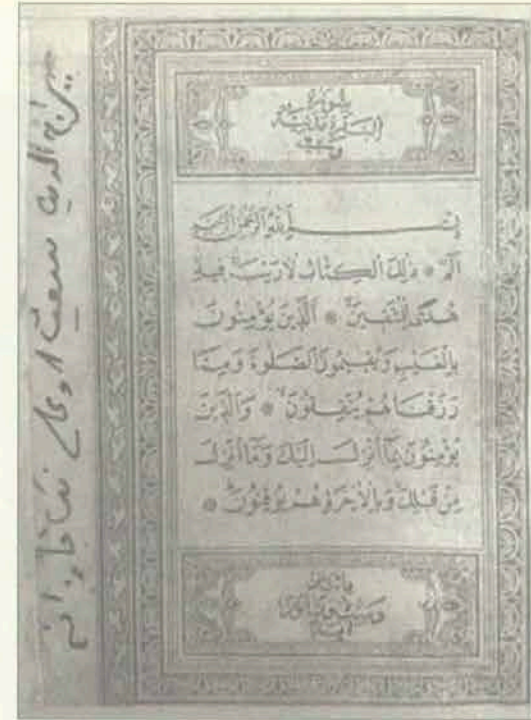 سورة
البقرة مدنية
بسم الله الرحمن الرحيم
الٓمٓ * ذٰلِكَ الْكِتَابُ لَا رَيْبَ فِيهِ
هُدًى لِلْمُتَّقِينَ * الَّذِينَ يُؤْمِنُونَ
بِالْغَيْبِ وَيُقِيمُونَ الصَّلٰوةَ وَمِمَّا
رَزَقْنَاهُمْ يُنْفِقُونَ * وَالَّذِينَ
يُؤْمِنُونَ بِمَا أُنْزِلَ إِلَيْكَ وَمَا أُنْزِلَ
مِنْ قَبْلِكَ وَبِالْاٰخِرَةِ هُمْ يُوقِنُونَ *
سراج الدين